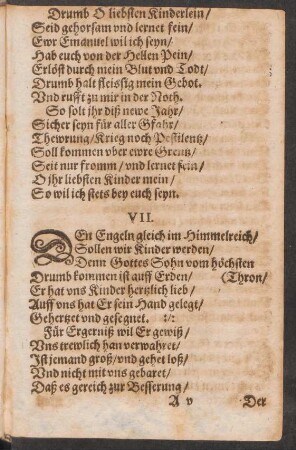 Drumb O liebsten Kinderlein/
Seid gehorsam vnd lernet fein/
Ewr Emanuel wil ich seyn/
Hab euch von der Hellen Pein/
Erlöst durch mein Blut vnd Todt/
Drumb halt fleissig mein Gebot.
Vnd rufft zu mir in der Noth.
So solt jhr diß newe Jahr/
Sicher seyn für aller Gfahr/
Thewrung/ Krieg noch Pestilentz/
Soll kommen vber ewre Grentz/
Seit nur fromm/ vnd lernet fein/
O jhr liebsten Kinder mein/
So wil ich stets bey euch seyn.
VII.
DEn Engeln gleich im Himmelreich/
Sollen wir Kinder werden/
Denn Gottes Sohn vom höchsten
Drumb kommen ist auff Erden/ (Thron/
Er hat vns Kinder hertzlich lieb/
Auff vns hat Er sein Hand gelegt/
Gehertzet vnd gesegnet. :/:
Für Ergerniß wil Er gewiß/
Vns trewlich han verwahret/
Ist jemand groß/ vnd gehet loß/
Vnd nicht mit vns gebaret/
Daß es gereich zur Besserung/
A v Der